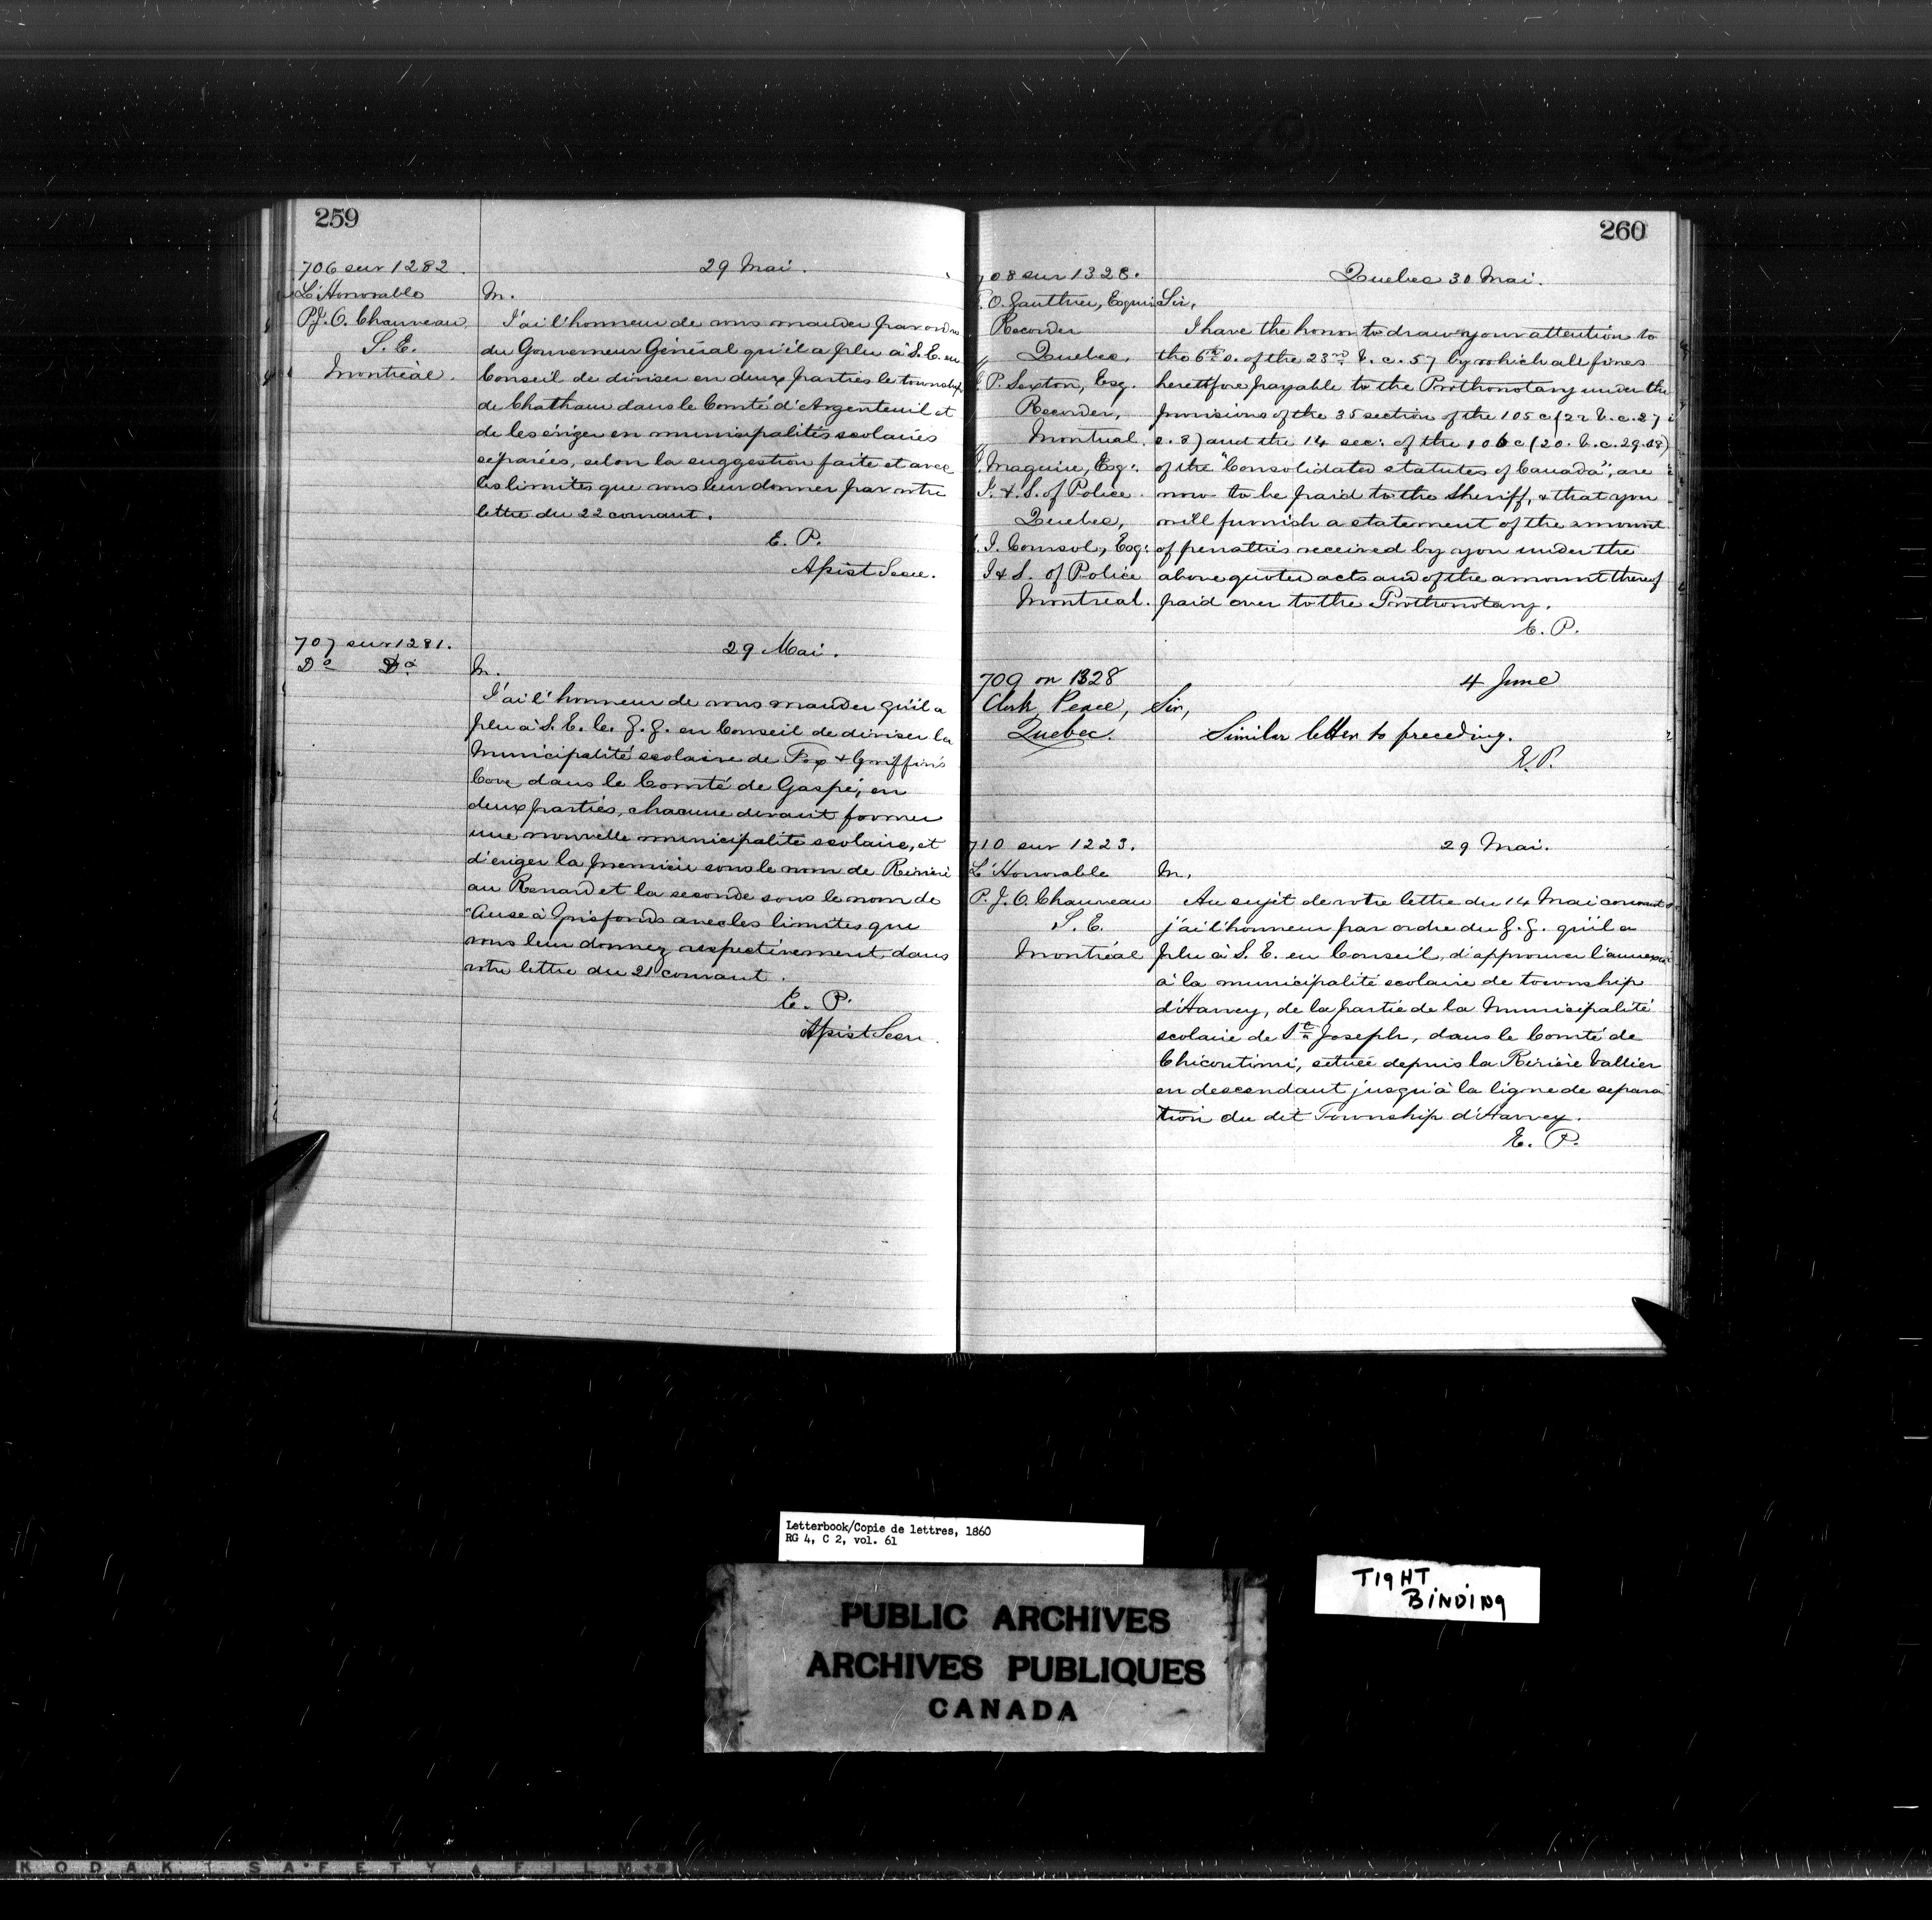 259
706 sur 1282.
29 Mai.
L'Honorable
P.J.O. Chauveau,
S. E.
Montréal.
M.
J'ai l'honneur de vous mander par ordre
du Gouverneur Général qu'il a plu à S. E. en
Conseil de diviser en deux parties le township
de Chatham dans le Comté d'Argenteuil et
de les ériger en municipalités scolaires
séparées, selon la suggestion faite et avec
les limites que vous leur donner par votre
lettre du 22 courant.
E. P.
Assist Secre.
707 sur 1281.
29 Mai.
Do Do
M.
J'ai l'honneur de vous mander qu'il a
plu à S. E. le G. G. en Conseil de diviser la
Municipalité scolaire de Fox & Griffin's
Cove dans le Comté de Gaspé, en
deux parties, chacune devant former
une nouvelle municipalité scolaire, et
d'eriger la premiére sous le nom de Riviére
au Renard et la seconde sous le nom de
"Anse à Grisfonds avec les limites que
vous leur donnez respectivement dans
votre lettre du 21 courant.
E. P.
Assist Secr.
260
708 sur 1328.
Quebec 30 Mai.
O. Gauthier, Esquire
Recorder
Quebec,
J. P. Sexton, Esq.
Recorder,
Montreal.
J. Maguire, Esq:
I. & S. of Police
Quebec,
C. J. Coursol, Esq:
I & S. of Police
Montreal.
Sir,
I have the honor to draw your attention to
the 6th s. of the 23rd V. c. 57 by which all fines
heretofore payable to the Prothonotary under the
provisions of the 35 section of the 105 c (22 V. c. 27
s. 8) and the 14 sec: of the 106 c (20. V. c. 29. s8)
of the "Consolidated statutes of Canada", are
now to be paid to the Sheriff, & that you
will furnish a statement of the amount
of penalties received by you under the
above quoted acts and of the amount thereof
paid over to the Prothonotary.
E. P.
709 on 1328
4 June
Clerk Peace,
Quebec.
Sir,
Similar letter to preceding.
E. P.
710 sur 1223.
29 Mai.
L'Honorable
P. J. O. Chauveau
S. E.
Montréal
M,
Au sujet de votre lettre du 14 Mai courant
j'ai l'honneur par ordre du G. G. qu'il a
plu à S. E. en Conseil, d'approuver l'annexion
à la municipalité scolaire de township
d'Harvey, de la partie de la Municipalité
scolaire de St Joseph, dans le Comté de
Chicoutimi, située depuis la Riviére Vallier
en descendant jusqu'à la ligne de separa
tion du dit Township d'Harvey.
E. P.
Letterbook/Copie de lettres, 1860
RG 4, C 2, vol. 61
TIGHT
BINDING
PUBLIC ARCHIVES
ARCHIVES PUBLIQUES
CANADA
KODAK SAFETY FILM